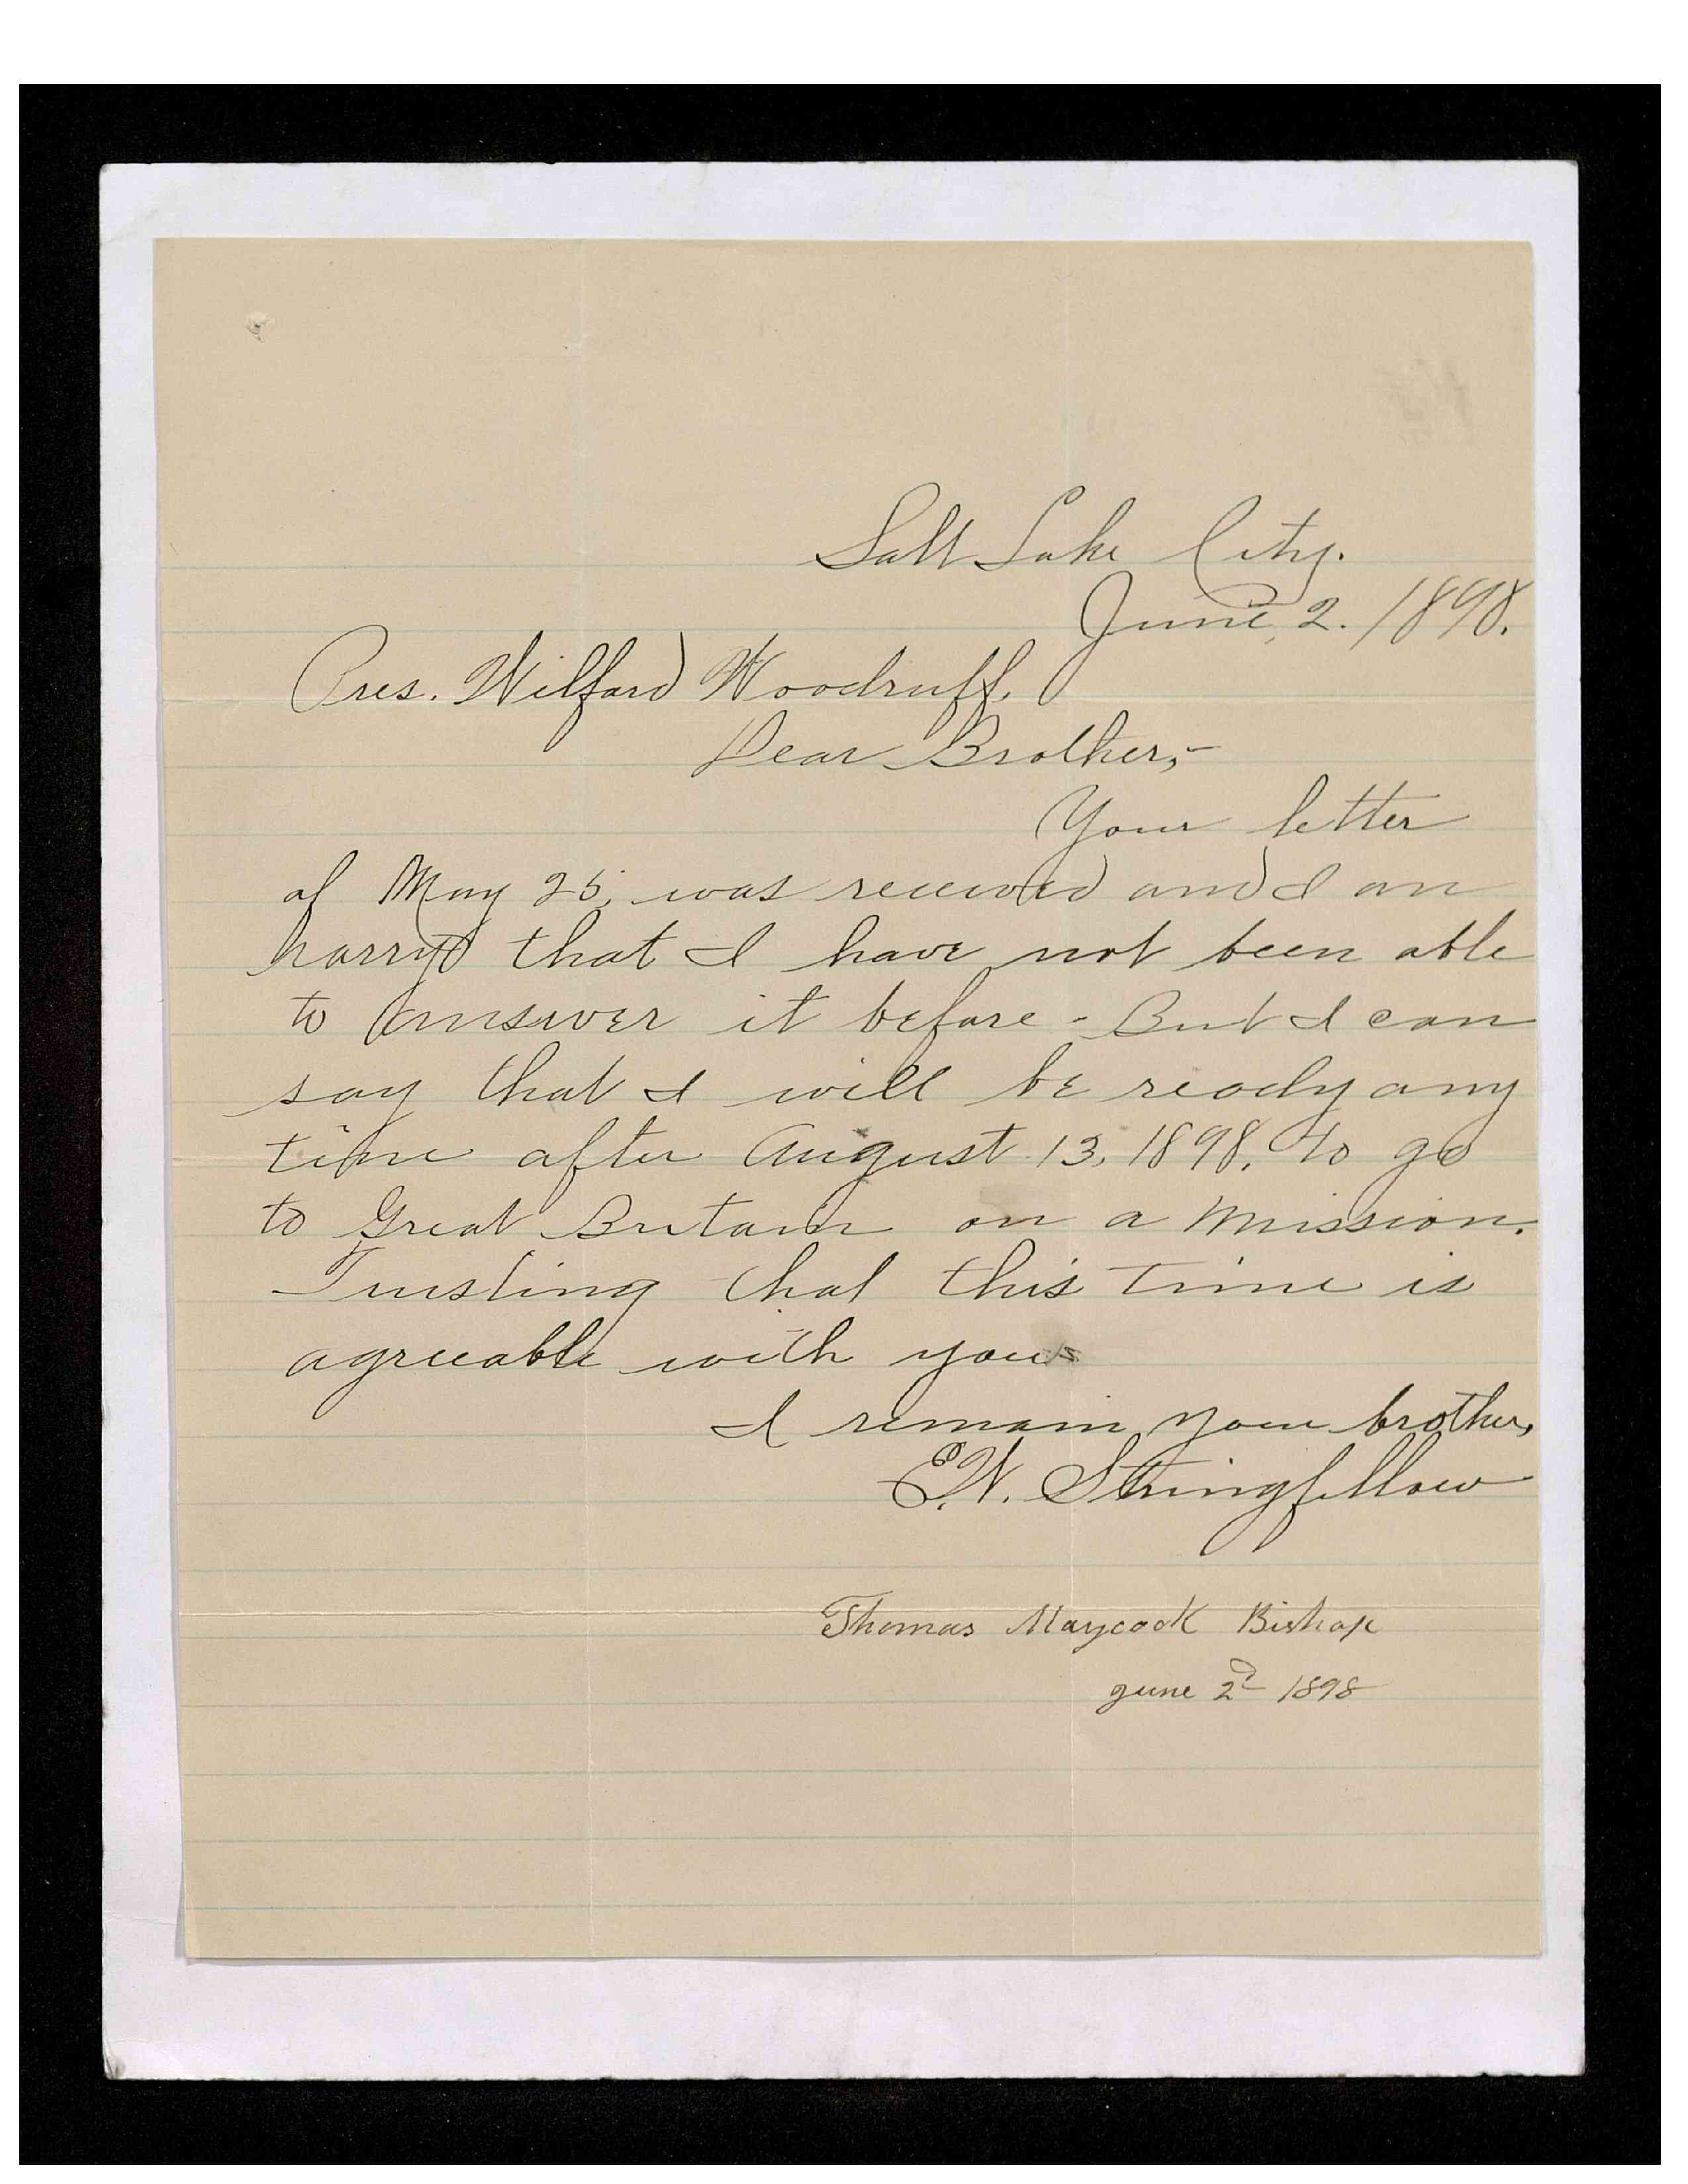 Salt Lake City.
June, 2. 1898.
Pres. Wilford Woodruff.
Dear Brother;-
Your letter
of May 25, was received and I am
that I have not been able
to answer it before - But I can
say that I will be ready any
time after August 13, 1898, to go
to Great Britain on a mission.
Trusting that this time is
agreeable with you
I remain your brother,
E.W. Stringfellow
Thomas Maycock Bishop
June 2d 1898